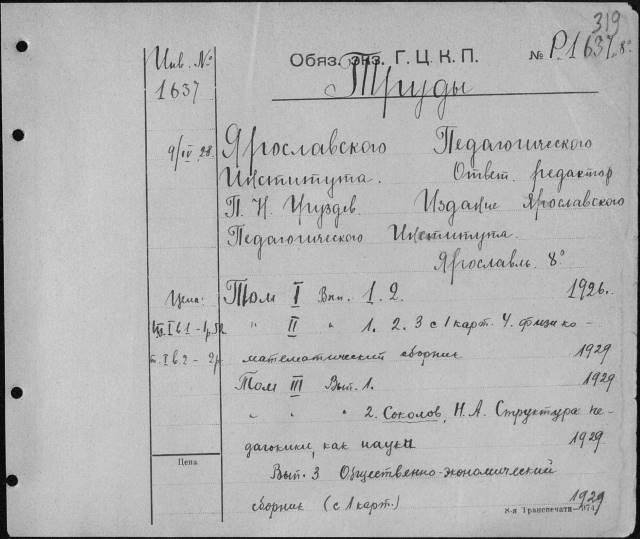 319
Инв. №
1637
Обяз. экз. Г. Ц. К. П.
№ Р1637 8°
Труды
9/IV 28.
Ярославского Педагогического
Института. Ответ. редактор
П. Н. Груздев. Издание Ярославского
Педагогического Института.
Ярославль 8°
Цена:
Том I Вып. 1. 2. 1926.
т. I в.1 - 1р.
" II " 1. 2. 3 с 1 карт. 4. физико-
т. I в. 2 - 2р
математический сборник 1929
Том III Вып. 1. 1929
" " " 2. Соколов, Н. А. Структура пе-
дагогики, как наука 1929
Цена
Вып. 3 Общественно-экономический
сборник (с 1 карт.) 1929
8-я Транспечати